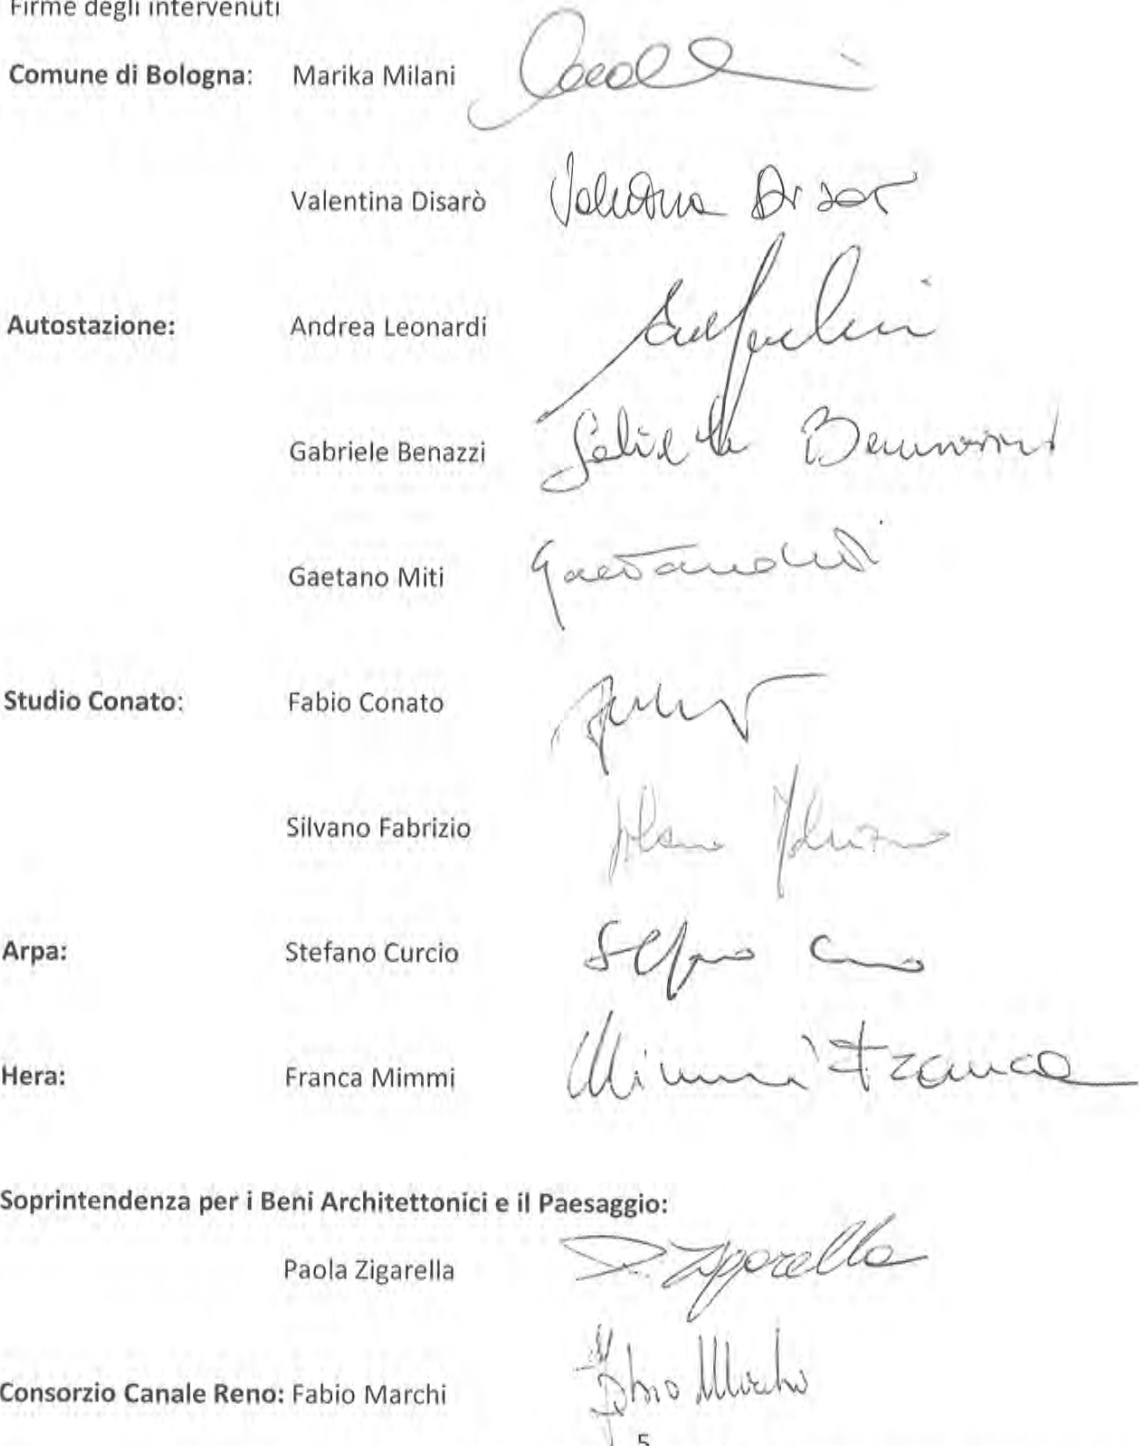 Firme degli intervenuti
Comune di Bologna: Marika Milani
Valentina Disarò Valentina Disarò
Autostazione: Andrea Leonardi
Gabriele Benazzi Gabriele Benazzi
Gaetano Miti Gaetano Miti
Studio Conato: Fabio Conato
Silvano Fabrizio Silvano Fabrizio
Arpa: Stefano Curcio Stefano Curcio
Hera: Franca Mimmi Mimmi Franca
Soprintendenza per i Beni Architettonici e il Paesaggio:
Paola Zigarella P. Zigarella
Consorzio Canale Reno: Fabio Marchi Fabio Marchi
5